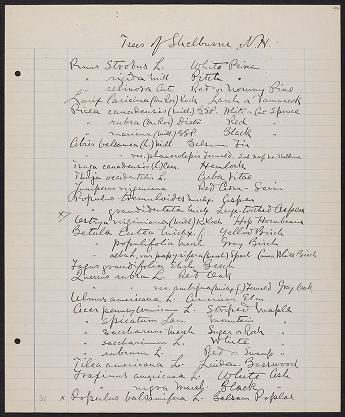 Trees of Shelburne, N.H.
Pinus Strobus L. White Pine
" rigida Mill Pitch "
" resinosa Ait. Red or Norway Pine
Larix laricina (Du Roi) Koch Larch or Tamarack
Picea canadensis (Mill.) BSP. White or Cat Spruce
" rubra (Du Roi) Dietr Red "
" mariana (Mill) BSP Black "
Abies balsamea (L.) Mill Balsam Fir
" " var. phanerolepis Fernald
Tsuga canadensis (L.) Carr. Hemlock
Thuja occidentalis L. Arbor Vitae
Juniperus virginiana Red Cedar - Savin
Populus tremuloides Michx. Aspen
" grandidentata Michx Large-toothed Aspen
Ostrya virginiana (Mill) K. Koch Hop Hornbeam
Betula lutea Michx. f. Yellow Birch
" populifolia Marsh Gray Birch
" alba L. var. papyrifera (Marsh) Spach Canoe White Birch
Fagus grandifolia Ehrh Beech
Quercus rubra L. Red Oak
" " var. ambigua (Michx. f.) Fernald Gray Oak
Ulmus americana L. American Elm
Acer pennsylvanicum L. Striped Maple
" spicatum Lam. Mountain "
" saccharum Marsh Sugar or Rock "
" saccharinum L. White "
" rubrum L. Red or Swamp "
Tilia americana L. Linden Basswood
Fraxinus americana L. White Ash
" nigra Marsh Black "
x Populus balsamifera L. Balsam Poplar